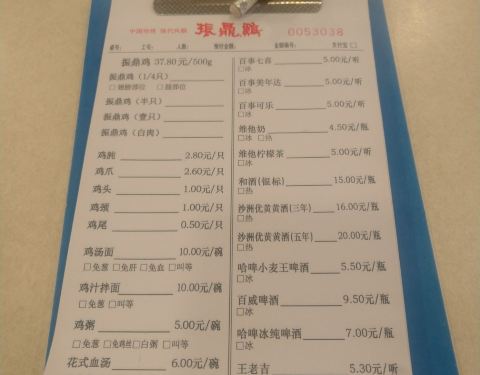 中国传统 现代风貌 振鼎鸡 0053038
桌号: 工号: 人数: 预付金额: 金额编号: 支付宝□
振鼎鸡 37.80元/500g
振鼎鸡(1/4只)
□翅膀部位 □腿部位
振鼎鸡(半只)
振鼎鸡(壹只)
振鼎鸡(白肉)
鸡肫 2.80元/只
鸡爪 2.60元/只
鸡头 1.00元/只
鸡颈 1.00元/只
鸡尾 0.50元/只
鸡汤面 10.00元/碗
□免葱 □免肝 □免血 □叫等
鸡汁拌面 10.00元/碗
□免葱 □叫等
鸡粥 5.00元/碗
□免葱 □免鸡丝 □白粥 □叫等
花式血汤 6.00元/碗
百事七喜 5.00元/听
□冰
百事美年达 5.00元/听
□冰
百事可乐 5.00元/听
□冰
维他奶 4.50元/瓶
□冰 □热
维他柠檬茶 5.00元/听
□冰
和酒(银标) 15.00元/瓶
□热
沙洲优黄黄酒(三年) 16.00元/瓶
□热
沙洲优黄黄酒(五年) 20.00元/瓶
□热
哈啤小麦王啤酒 5.50元/瓶
□冰
百威啤酒 9.50元/瓶
□冰
哈啤冰纯啤酒 7.00元/瓶
□冰
王老吉 5.30元/听